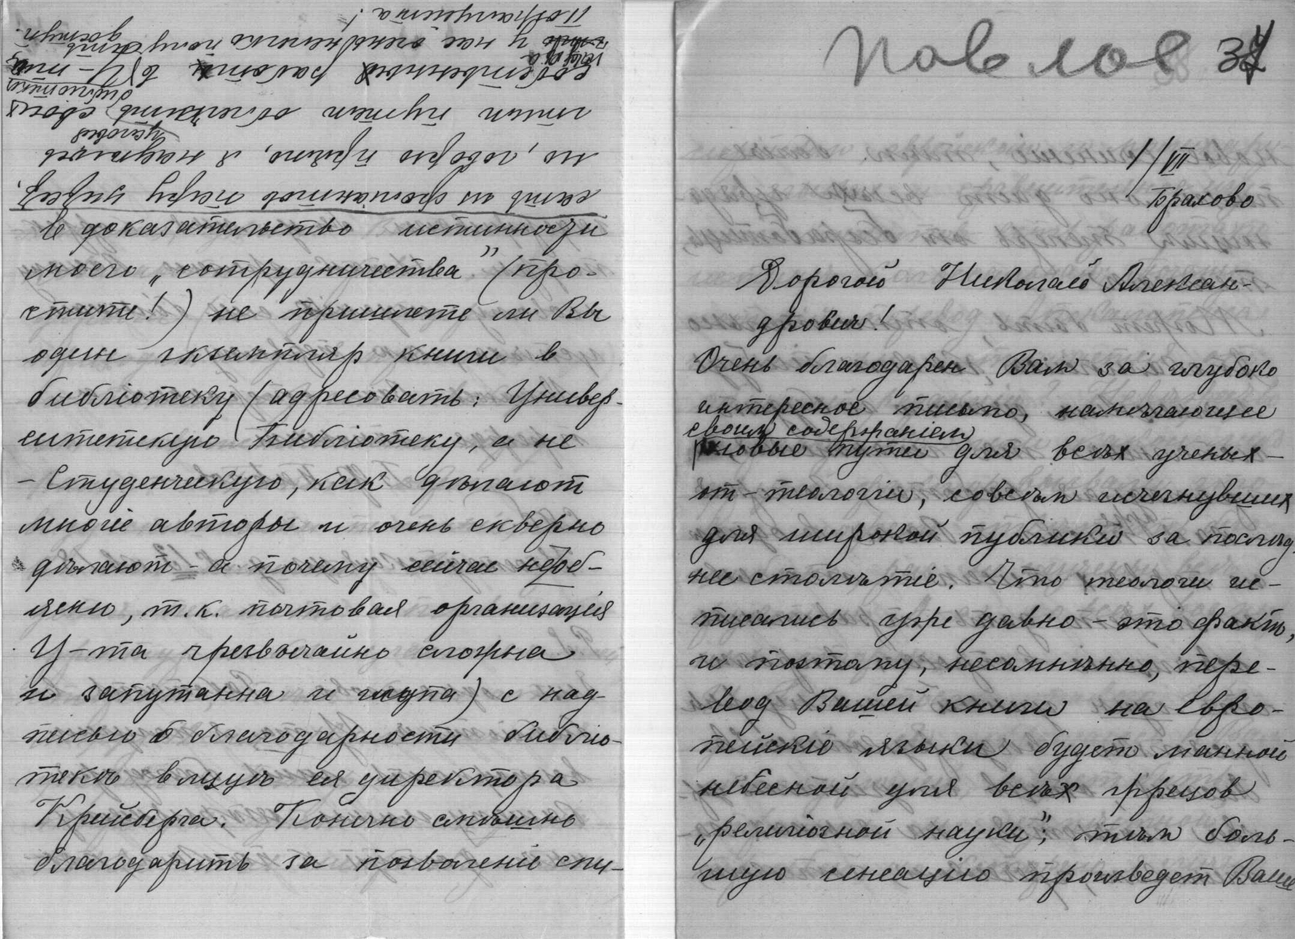 Павлов 37
1/VII
Брахово
Дорогой Николай Алексан-
дрович!
Очень благодарен Вам за глубоко
интересное письмо, намечающее
своим содержаніем
новые пути для всѣх ученых –
от – теологіи, совсѣм исчезнувших
для широкой публики за послѣд-
нее столѣтіе. Что теологи ис-
писались уже давно – это факт,
и поэтому, несомнѣнно, пере-
вод Вашей книги на Евро-
пейскіе языки будет манной
небесной для всѣх жрецов
„религіозной науки"; тѣм боль-
шую сенсацію произведет Ваше
в доказательство истинности
моего „сотрудничества" (про-
стите!) не пришлете ли Вы
один экземпляр книги в
библіотеку (адресовать: Универ-
ситетскую Библіотеку, а не
– Студенческую, как дѣлают
многіе авторы и очень скверно
дѣлают – а почему сейчас
т.к. почтовая организація
У–та чрезвычайно сложна
и запутанна и глупа) с над-
писью о благодарности библіо-
текѣ в лицѣ ея директора
Крейберга. Конечно смѣшно
благодарить за позволеніе спи-
сать
но, говоря прямо, я надѣюсь
этим путем облегчить свои
условія
работы в У–тѣ
библіотека
у нас очень
доступ.
Пожалуйста!